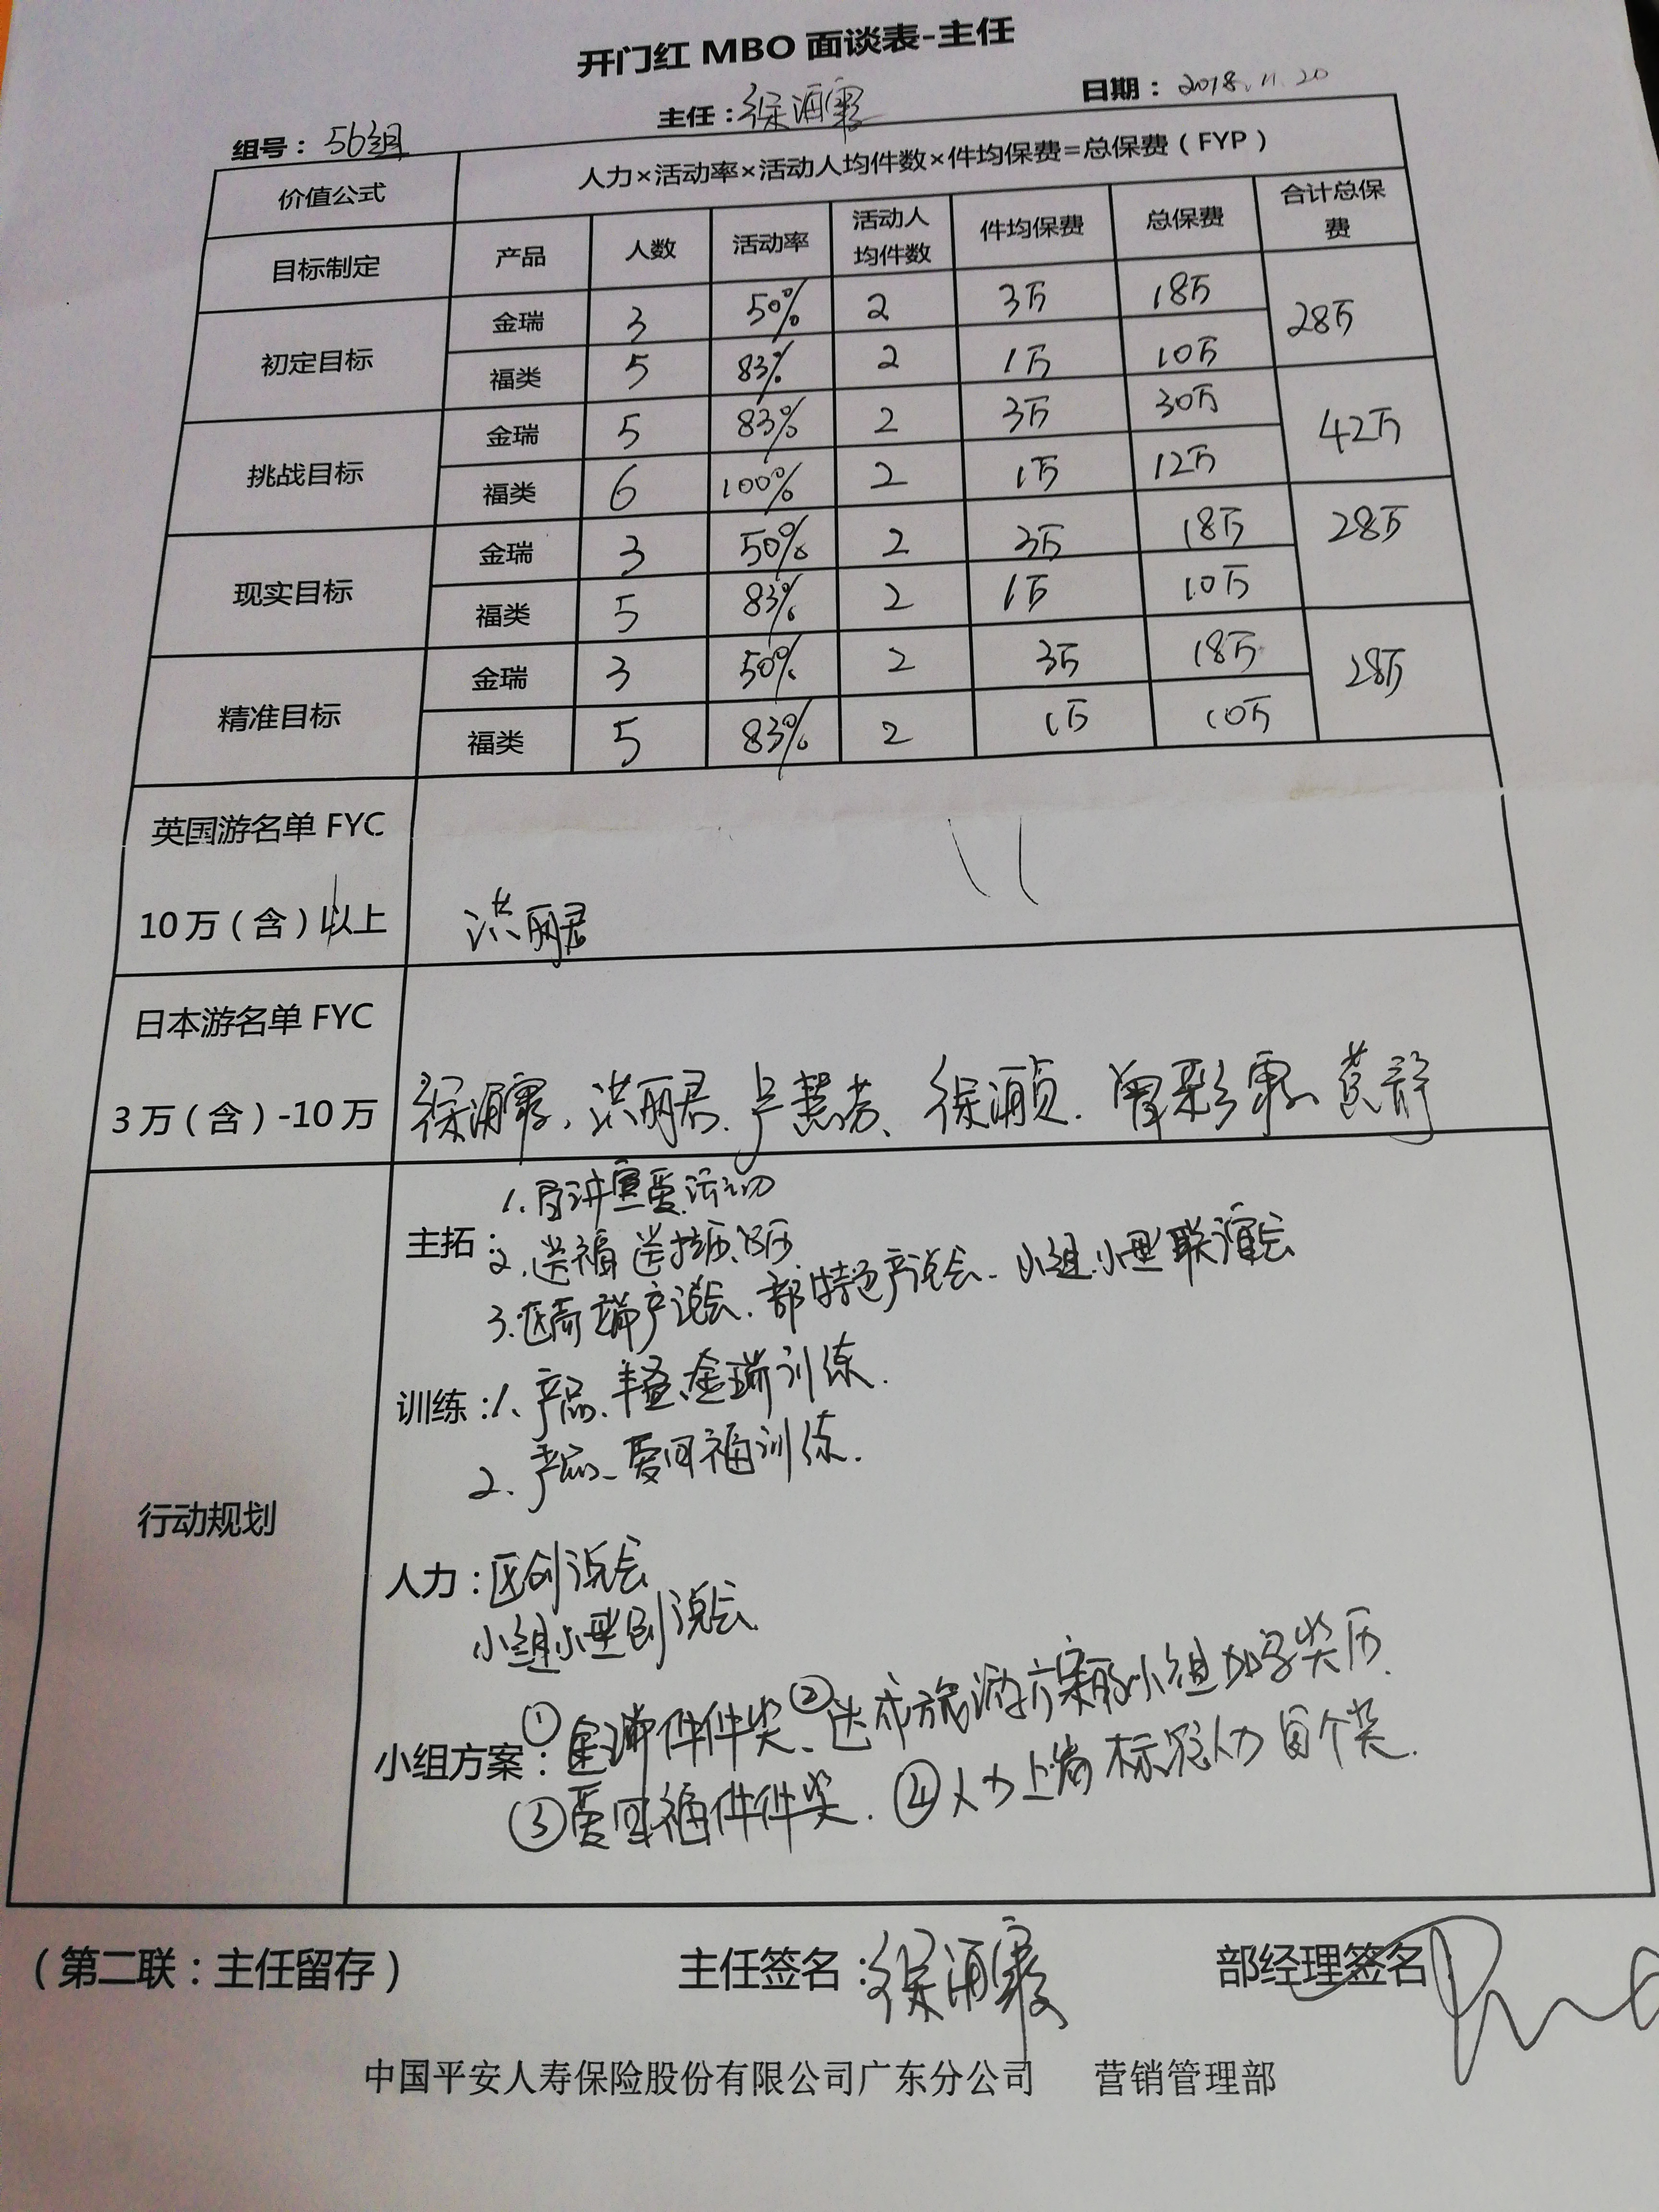 开门红 MBO 面谈表-主任
组号：56组 主任：徐 日期：2018.11.20
价值公式 人力×活动率×活动人均件数×件均保费=总保费（FYP）
目标制定 产品 人数 活动率 活动人均件数 件均保费 总保费 合计总保费
初定目标 金瑞 3 50% 2 3万 18万 28万
福类 5 83% 2 1万 10万
挑战目标 金瑞 5 83% 2 3万 30万 42万
福类 6 100% 2 1万 12万
现实目标 金瑞 3 50% 2 3万 18万 28万
福类 5 83% 2 1万 10万
精准目标 金瑞 3 50% 2 3万 18万 28万
福类 5 83% 2 1万 10万
英国游名单 FYC
10万（含）以上 洪丽君
日本游名单 FYC
3万（含）-10万 徐 洪丽君、卢慧芳、徐 黄静
行动规划
主拓：1. 活动
2. 送福 送挂历、
3. 区高端产说会、部特色产说会、小组小型联谊会
训练：1、产品、丰盈、金瑞训练.
2、产品、爱回福训练.
人力：区创说会
小组小型创说会
小组方案：①金瑞件件奖、②达成旅游方案 小组
③爱回福件件奖. ④人力 人力 奖.
（第二联：主任留存） 主任签名：徐 部经理签名
中国平安人寿保险股份有限公司广东分公司 营销管理部